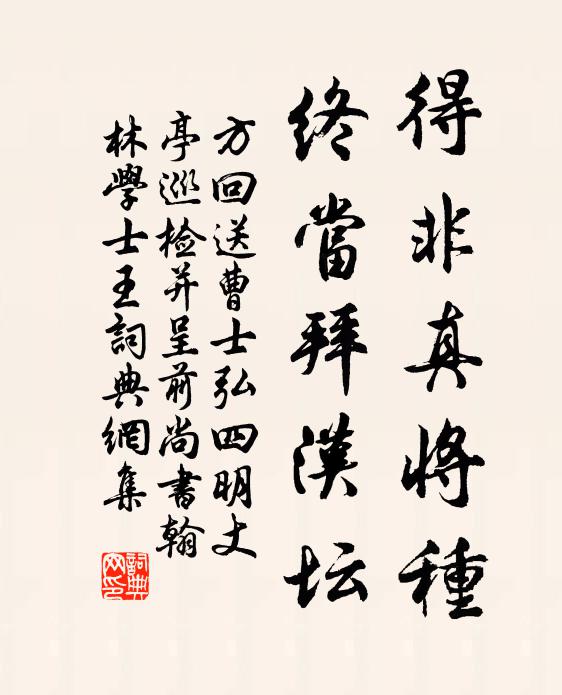 得非真將種
終當拜漢坛
方回送曹士弘四明丈
亭巡检并呈前尚書翰
林學士王詞典網集
詞典
网印